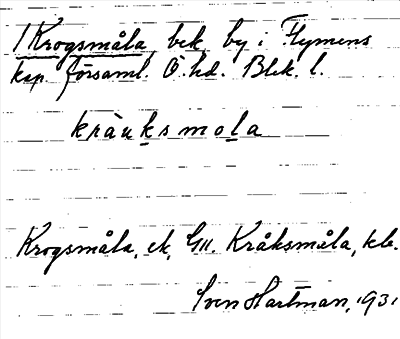 1 Krogsmåla bek. by i Flymens
kap. församl. Ö. hd. Blek. l.
kràuksmola
Krogsmåla, ek, GU. Kråksmåla, kb.
Sven Hartman, 1931